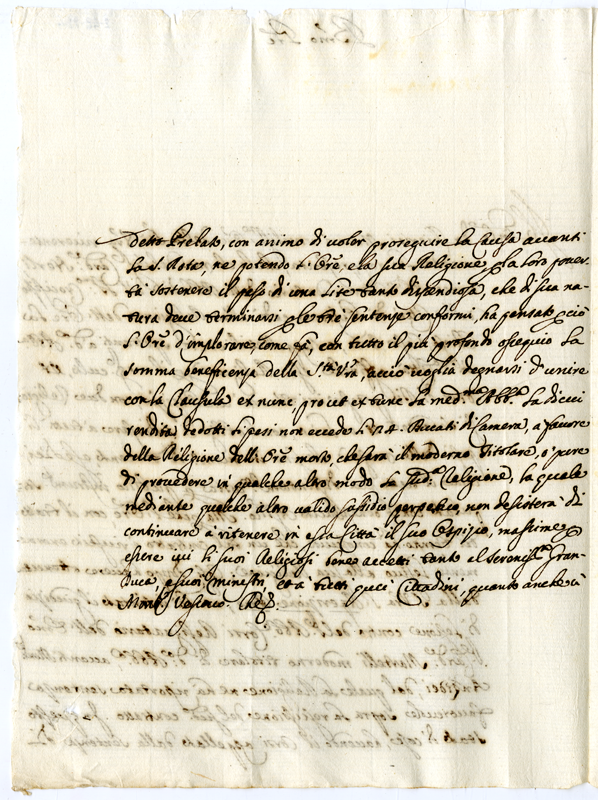 detto Prelato, con animo di voler proseguire la Causa avanti
la S. Rota, ne potendo l'Ore, e la sua Religione p la loro pover
tà sostenere il peso di una lite tanto dispendiosa, che di sua na-
tura deve terminarsi p le tre sentenze conformi, ha pensato p ciò
l'Ore d'implorare, come fà, con tutto il più profondo ossequio la
somma beneficenza della S.tà Vra, acciò voglia degnarsi d'unire
con la Clausula ex nunc, prout ex tunc la med.ma Abb.a la di cui
rendita dedotti li pesi non eccede li 24. Ducati di Camera, a favore
della Religione dell'Ore morto, che sarà il moderno Titolare, o pure
di provedere in qualche altro modo la Religione, la quale
mediante qualche altro valido sussidio perpetuo, non desisterà di
continuare à ritenere in essa Città il suo Ospizio, massime p
essere ivi li suoi Religiosi bene accetti tanto al Serenis.mo Gran
Duca, e suoi Ministri, et à tutti quei Cittadini, quanto anche à
Mons. Vescovo. Che p.